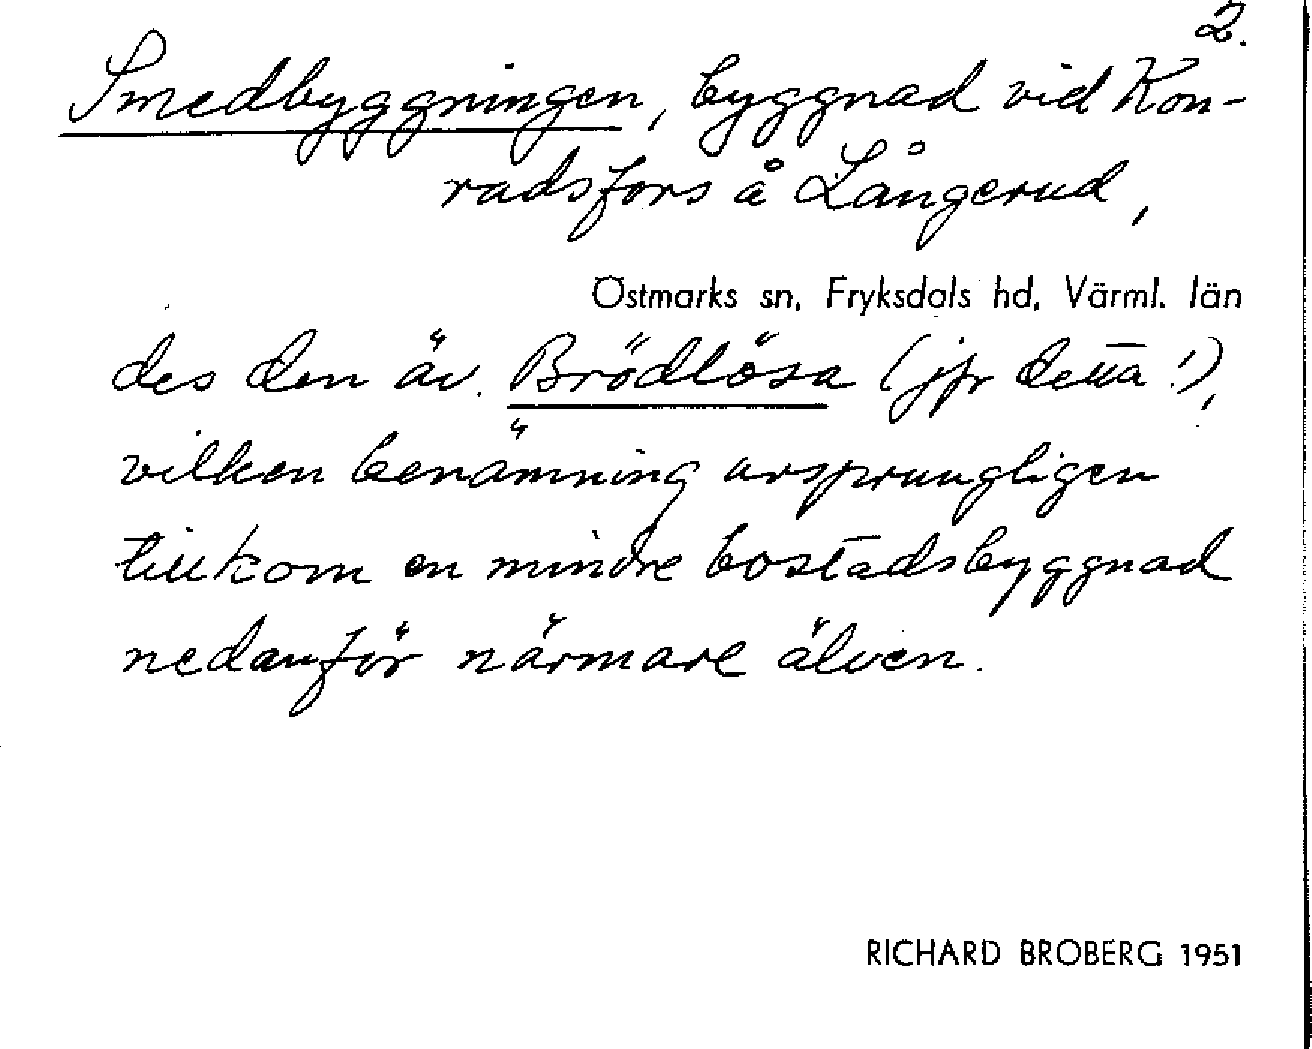 2.
Smedbyggningen, byggnad vid Kon-
radsfors å Långerud,
Östmarks sn, Fryksdals hd, Värml. län
des den äv. Brödlösa (jfr detta!),
vilken benämning ursprungligen
tillkom en mindre bostadsbyggnad
nedanför närmare älven.
RICHARD BROBERG 1951